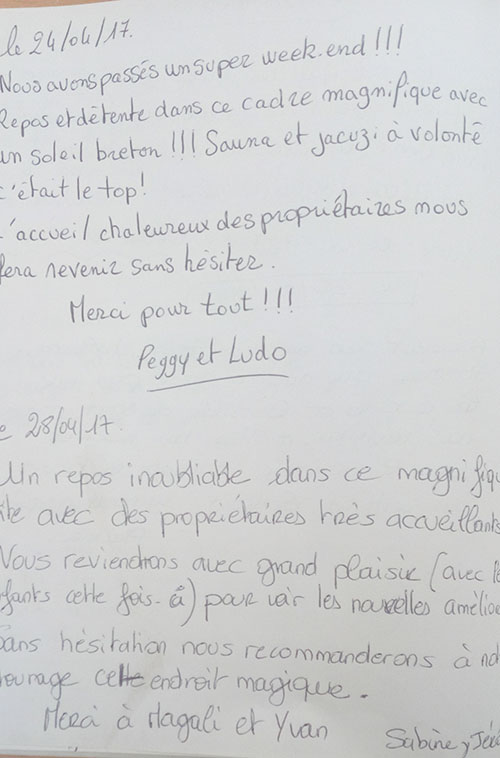 le 24/04/17.
Nous avons passés un super week-end !!!
Repos et détente dans ce cadre magnifique avec
un soleil breton !!! Sauna et jacuzi à volonté
c'était le top !
L'accueil chaleureux des propriétaires nous
fera revenir sans hésiter.
Merci pour tout !!!
Peggy et Ludo
28/04/17.
Un repos inoubliable dans ce magnifiqu
ite avec des propriétaires très accueillants
Nous reviendrons avec grand plaisir (avec le
fants cette fois-ci) pour voir les nouvelles amélio
Sans hésitation nous recommanderons à no
tourage cette endroit magique.
Merci à Magali et Yvan
Sabine y Jéré